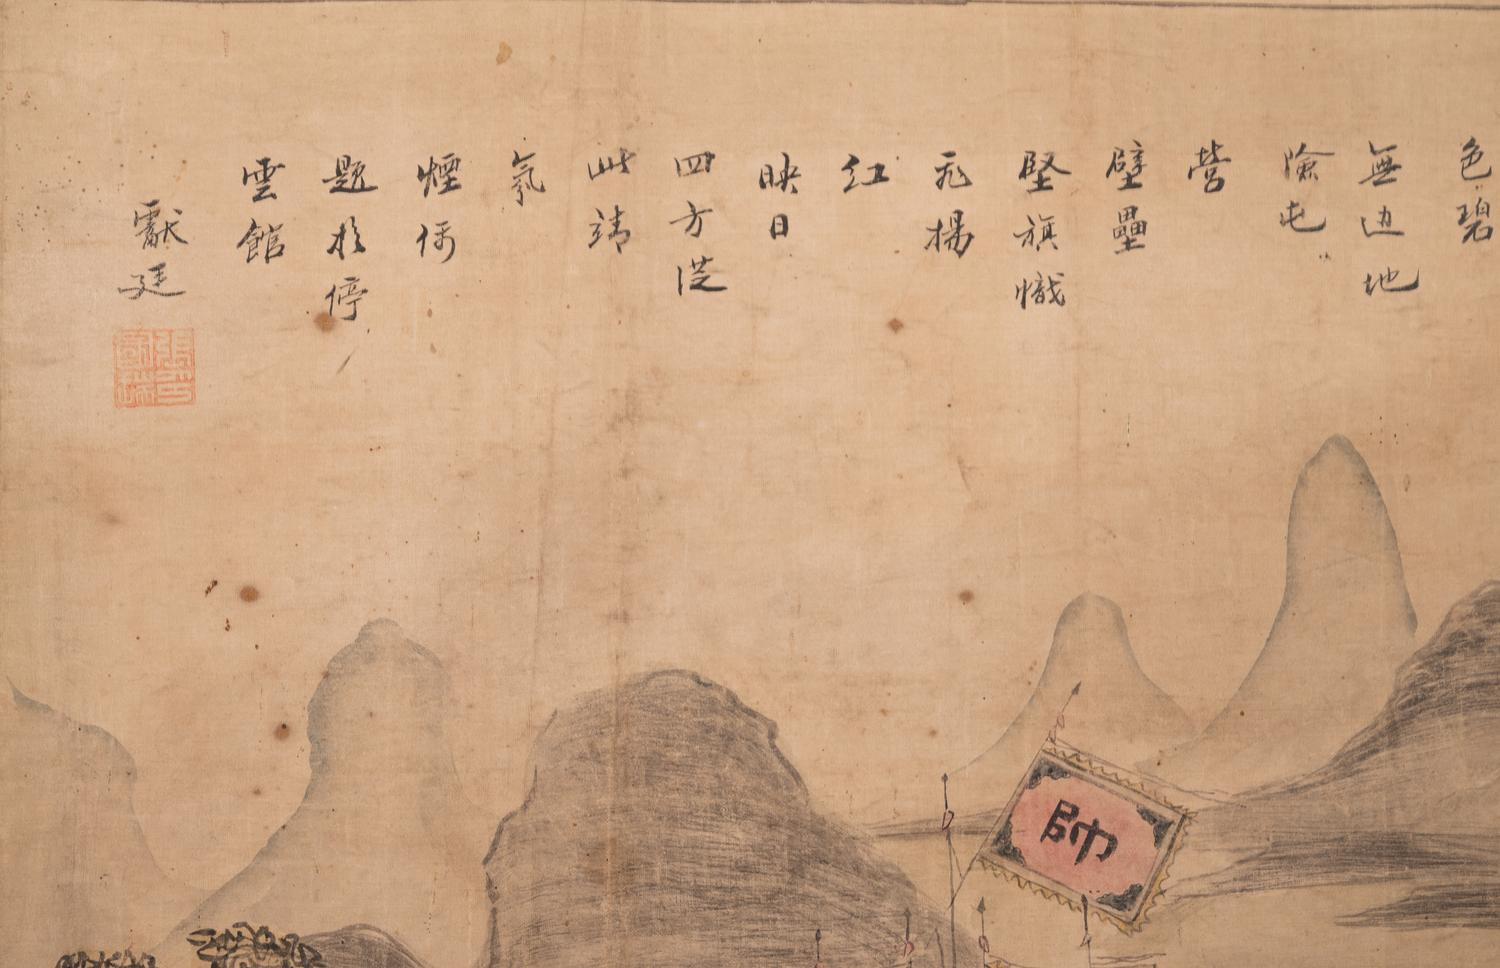 色碧
無边地
險屯
營
壁壘
堅旗幟
飛揚
红
映日
四方從
此靖
氛
煙偶
題於停
雲館
獻廷
帥